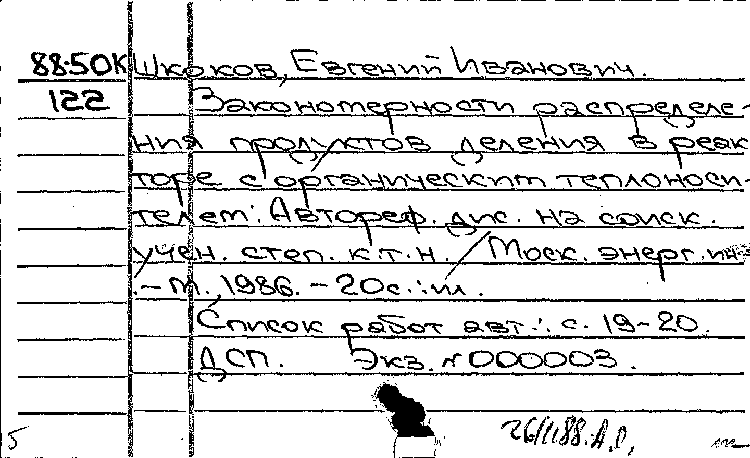 88-50К Шкоков, Евгений Иванович.
122 Закономерности распределе-
ния продуктов деления в реак
торе с органическим теплоноси-
телем: Автореф. дис. на соиск.
учен. степ. к.т.н. / Моск. энерг. ин-т
.- М., 1986. - 20с.: ил.
Список работ авт.: с. 19-20.
ДСП. Экз. №000003.
5